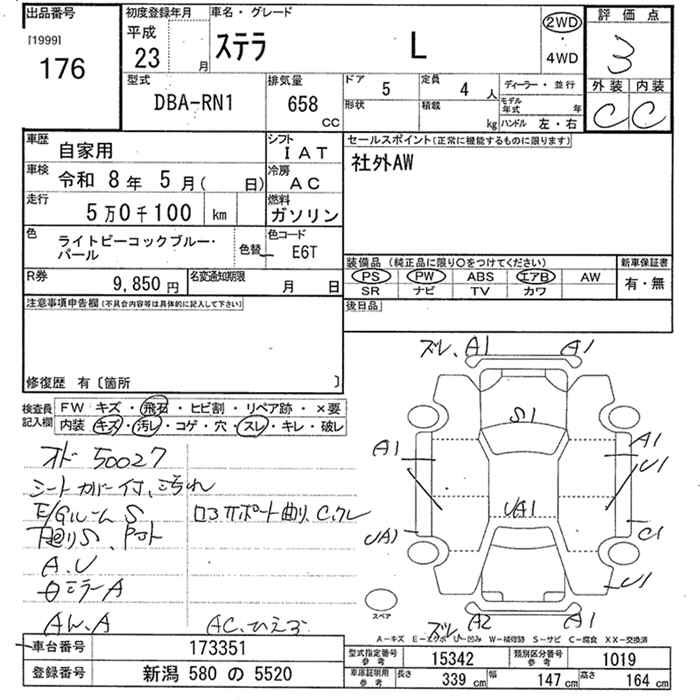 出品番号
[1999]
176
初度登録年月
平成
23 月
車名・グレード
ステラ L
2WD
・
4WD
評価点
3
外装 内装
C C
型式
DBA-RN1
排気量
658
CC
ドア
5
定員
4 人
形状
積載
kg
ディーラー・並行
モデル年式 年
ハンドル 左・右
車歴
自家用
シフト
IAT
車検
令和 8年 5月( 日)
冷房
AC
走行
5万0千100 km
燃料
ガソリン
色
ライトピーコックブルー・
パール
色替
色コード
E6T
R券
9,850 円
名変通知期限
月 日
セールスポイント(正常に機能するものに限ります)
社外AW
装備品 (純正品に限り○をつけてください)
PS PW ABS エアB AW
SR ナビ TV カワ
新車保証書
有・無
後日品
注意事項申告欄(不具合内容等は具体的に記入して下さい)
修復歴 有〔箇所 〕
検査員
記入欄
FW キズ・飛石・ヒビ割・リペア跡・×要
内装 キズ・汚レ・コゲ・穴・スレ・キレ・破レ
オド 50027
シートカバー付、汚れ
E/Gルーム S
下回りS、
A.U
A
A
AC.
ズレ、A1
A1
S1
A1
A1
U1
UA1
UA1
C1
U1
スペア
ズレ
A2
A1
A-キズ E-エクボ U-凹み W-補修跡 S-サビ C-腐食 XX-交換済
車台番号
173351
登録番号
新潟 580 の 5520
型式指定番号
参考
15342
類別区分番号
参考
1019
車庫証明用
参考
長さ
339 cm
幅
147 cm
高さ
164 cm